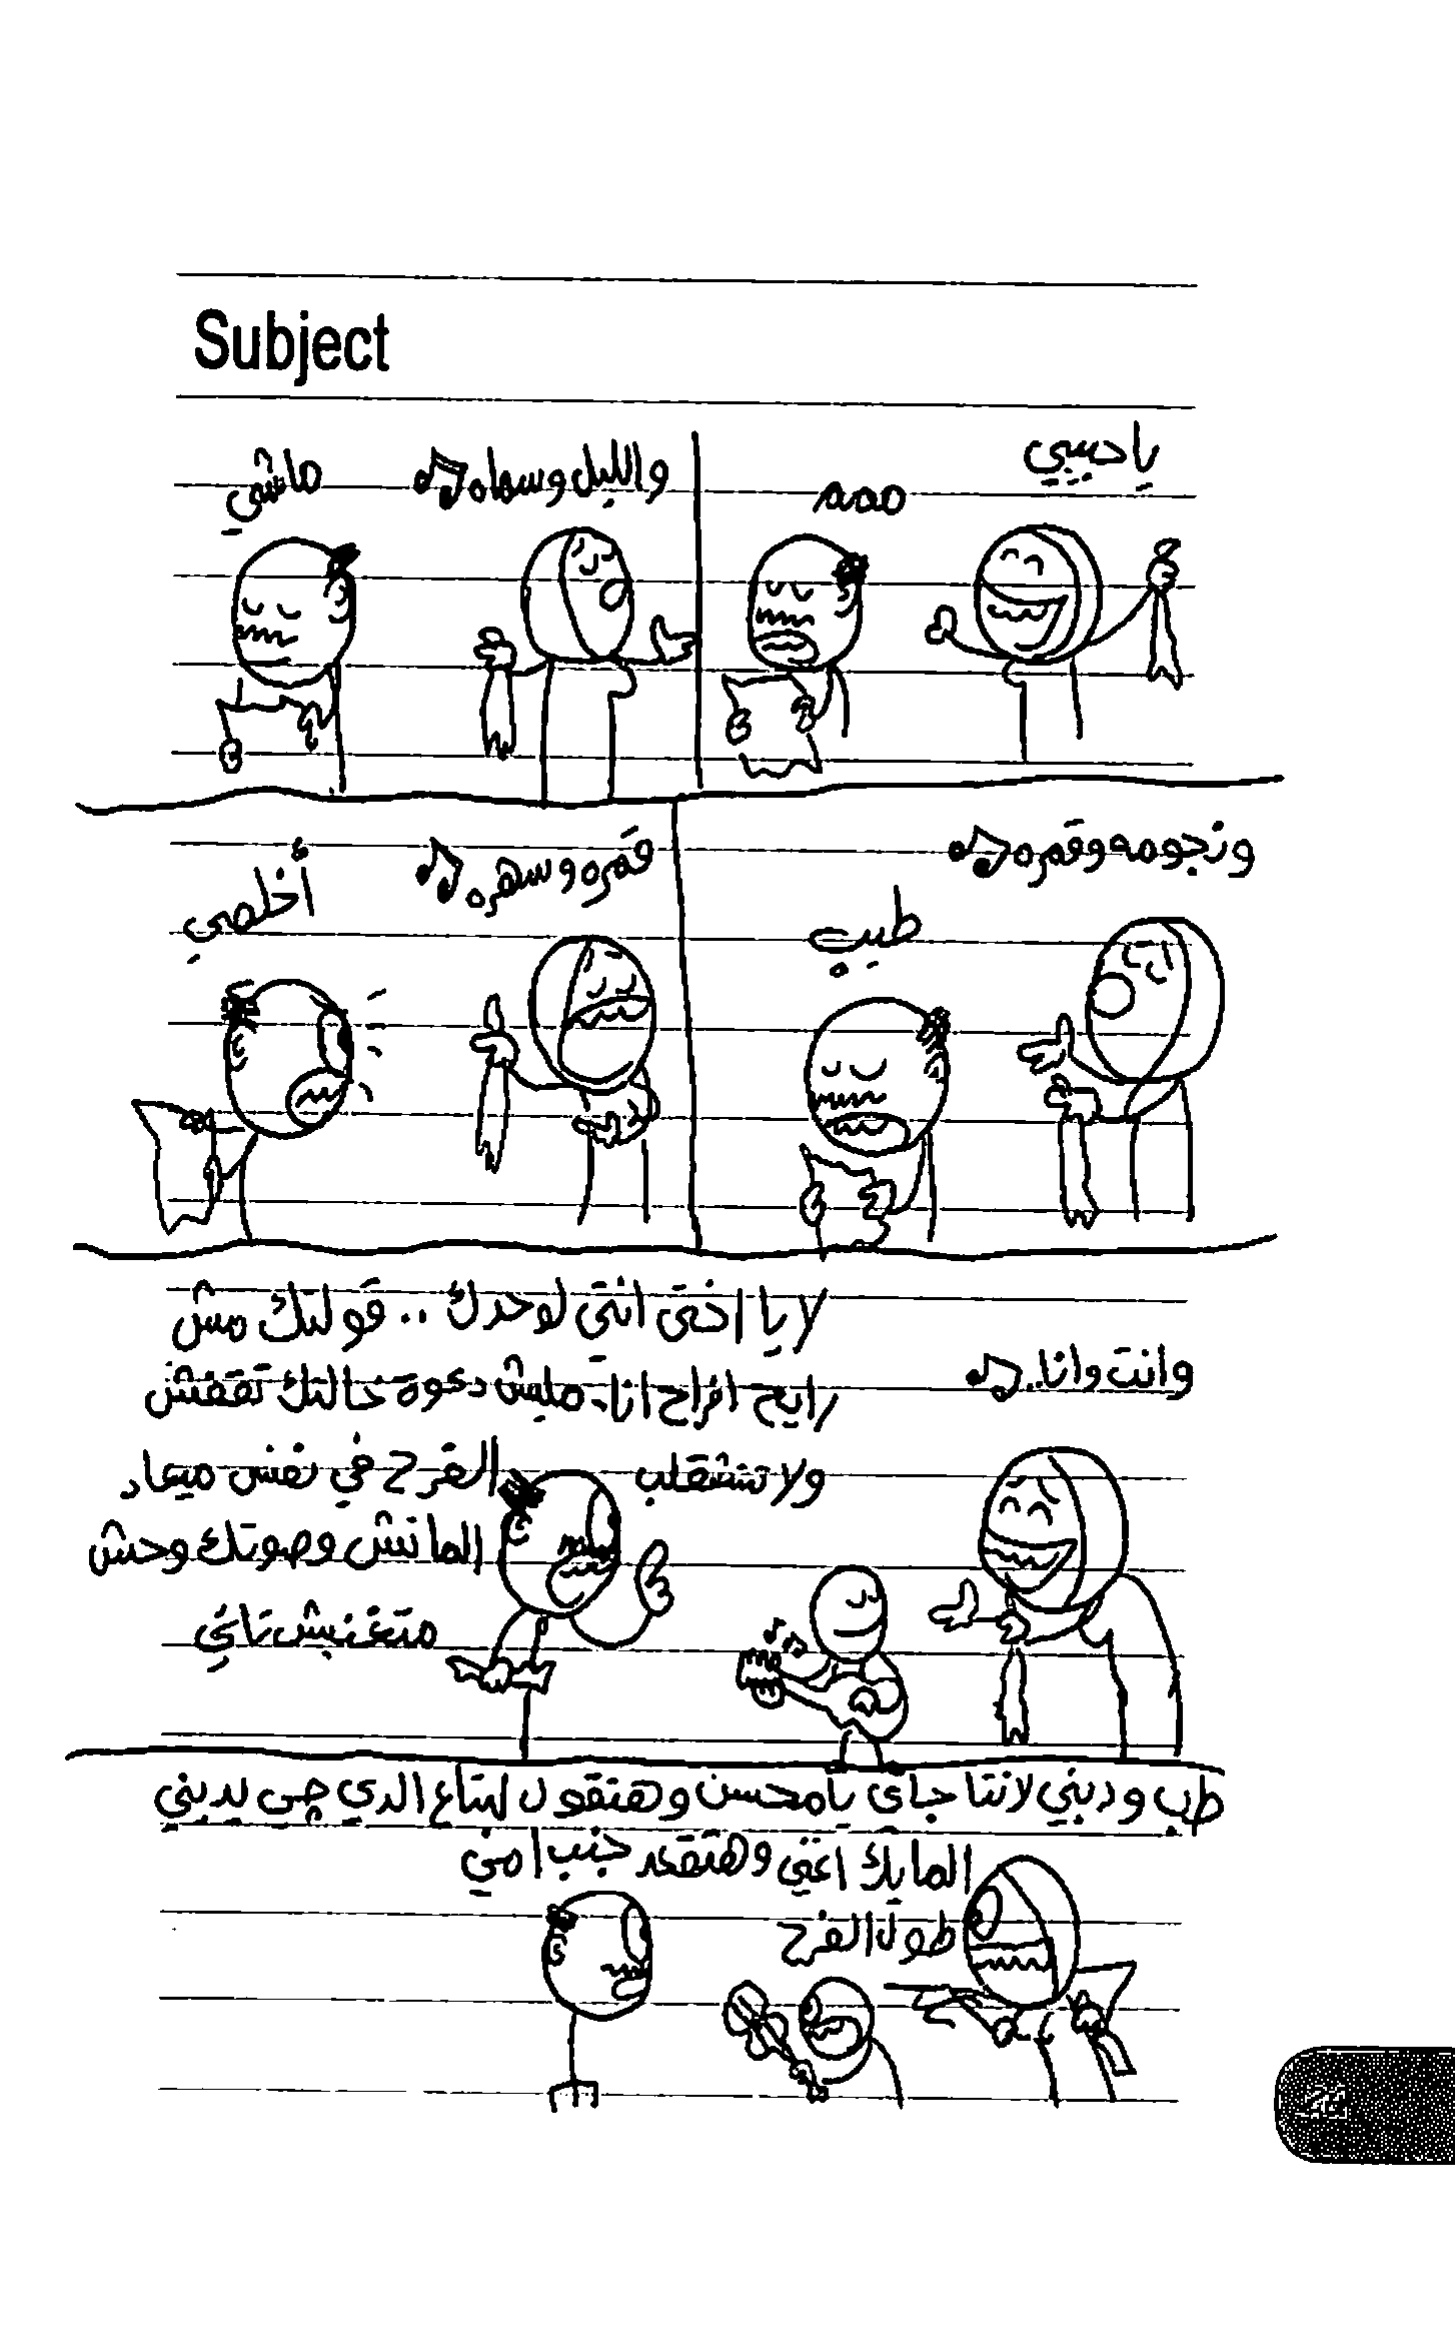 Subject
يا حبيبي
ممم
والليل وسماه
ماشي
ونجومه وقمره
طيب
قمره وسهره
أخلصي
وانت وانا..
لا يا اختي انتي لوحدك .. قولتلك مش
رايح افراح انا.. مليش دعوة خالتك تقفش
ولا تتشقلب
الفرح في نفس ميعاد
الماتش وصوتك وحش
متغنيش تاني
طب وديني لانتا جاي يا محسن وهتقول لبتاع الدي چي يديني
المايك اغني وهتقعد جنب امي
طول الفرح